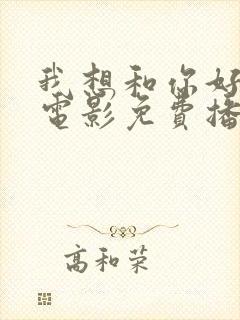 我想和你好
電影免費播
高和荣